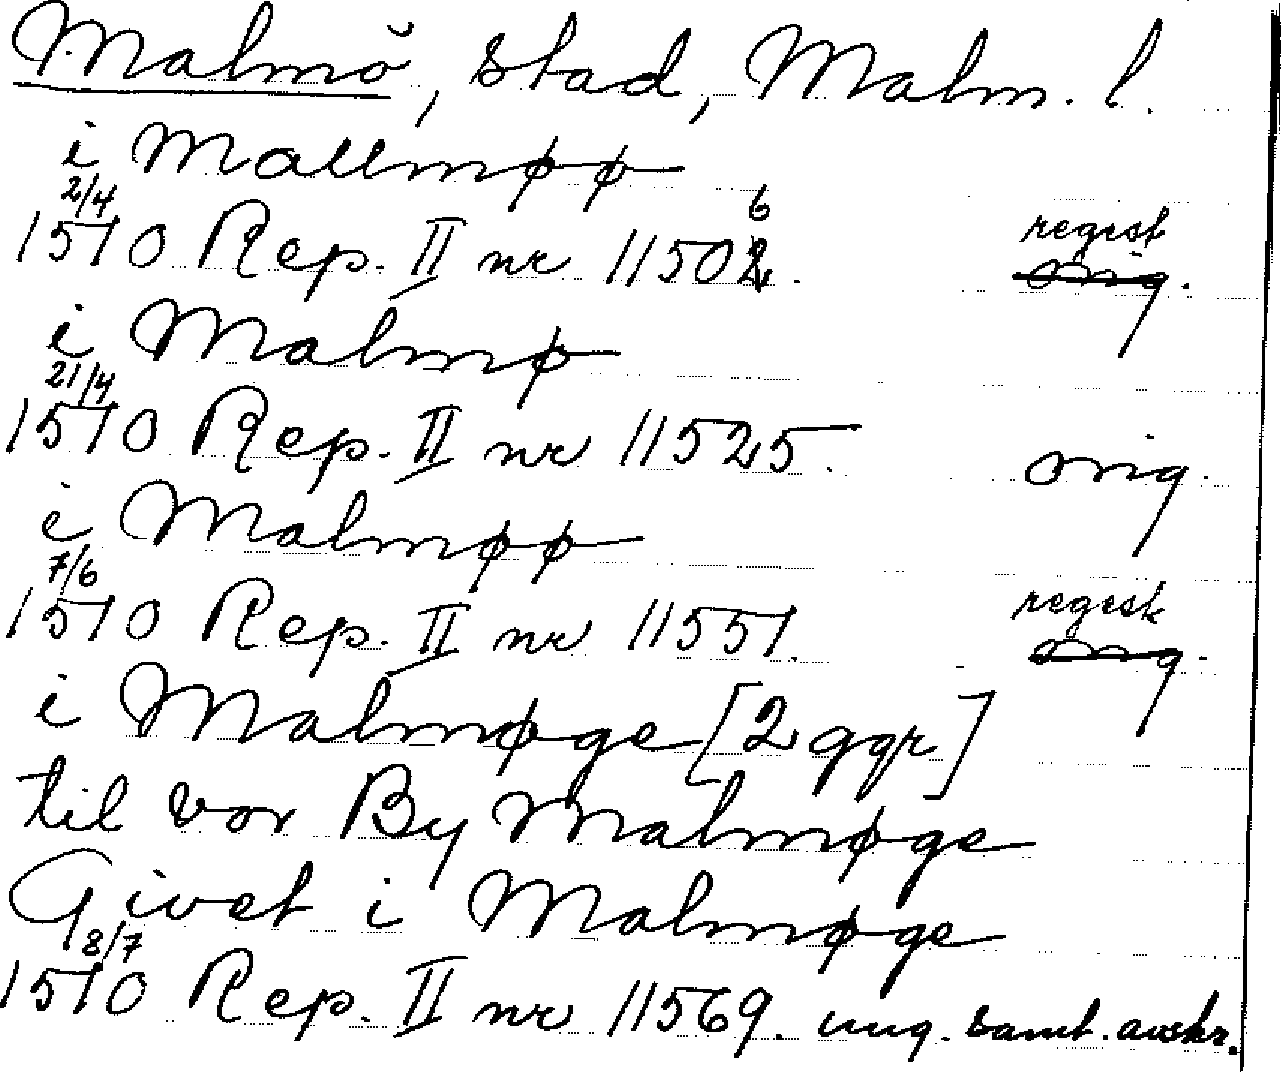 Malmö, stad, Malm. l.
i Mallmøø
2/4
1510 Rep. II nr 11506. regest
orig.
i Malmø
21/4
1510 Rep. II nr 11525. orig.
i Malmøø
7/6
1510 Rep. II nr 11551. regest
orig.
i Malmøge [2 ggr]
til vor By Malmøge
Givet i Malmøge
8/7
1510 Rep. II nr 11569. ung. samt. avskr.